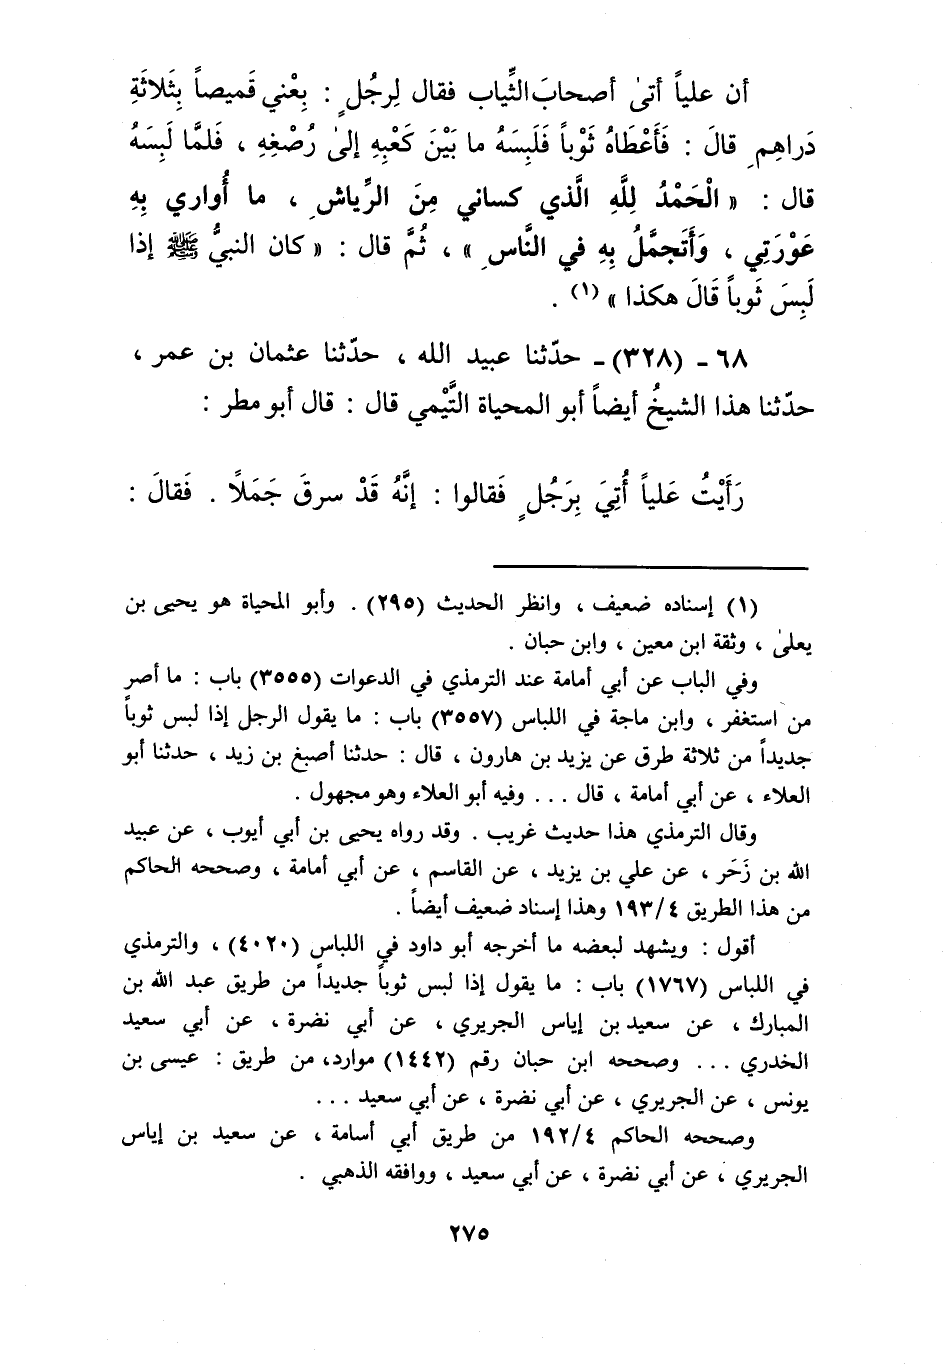 أن علياً أتىٰ أصحابَ الثِّياب فقال لِرجُلٍ : بِعْني قَميصاً بِثَلاثَةِ
دَراهِمٍ قالَ : فَأَعْطَاهُ ثَوْباً فَلَبِسَهُ ما بَيْنَ كَعْبِهِ إلىٰ رُصْغِهِ ، فَلمَّا لَبِسَهُ
قال : « الْحَمْدُ لِلَّهِ الَّذي كساني مِنَ الرِّياشِ ، ما أُواري بِهِ
عَوْرَتِي ، وَأَتَجمَّلُ بِهِ في النَّاسِ » ، ثُمَّ قال : « كان النبيُّ ﷺ إذا
لَبِسَ ثَوباً قَالَ هكذا » (١) .
٦٨ - (٣٢٨) - حدّثنا عبيد الله ، حدّثنا عثمان بن عمر ،
حدّثنا هذا الشيخُ أيضاً أبو المحياة التَّيْمي قال : قال أبو مطر :
رَأَيْتُ عَلياً أُتِيَ بِرَجُلٍ فَقالوا : إنَّهُ قَدْ سرقَ جَمَلًا . فَقالَ :
(١) إسناده ضعيف ، وانظر الحديث (٢٩٥) . وأبو المحياة هو يحيى بن
يعلىٰ ، وثقة ابن معين ، وابن حبان .
وفي الباب عن أبي أمامة عند الترمذي في الدعوات (٣٥٥٥) باب : ما أصر
من استغفر ، وابن ماجة في اللباس (٣٥٥٧) باب : ما يقول الرجل إذا لبس ثوباً
جديداً من ثلاثة طرق عن يزيد بن هارون ، قال : حدثنا أصبغ بن زيد ، حدثنا أبو
العلاء ، عن أبي أمامة ، قال ... وفيه أبو العلاء وهو مجهول .
وقال الترمذي هذا حديث غريب . وقد رواه يحيى بن أبي أيوب ، عن عبيد
الله بن زَحَر ، عن علي بن يزيد ، عن القاسم ، عن أبي أمامة ، وصححه الحاكم
من هذا الطريق ١٩٣/٤ وهذا إسناد ضعيف أيضاً .
أقول : ويشهد لبعضه ما أخرجه أبو داود في اللباس (٤٠٢٠) ، والترمذي
في اللباس (١٧٦٧) باب : ما يقول إذا لبس ثوباً جديداً من طريق عبد الله بن
المبارك ، عن سعيد بن إياس الجريري ، عن أبي نضرة ، عن أبي سعيد
الخدري ... وصححه ابن حبان رقم (١٤٤٢) موارد، من طريق : عيسى بن
يونس ، عن الجريري ، عن أبي نضرة ، عن أبي سعيد ...
وصححه الحاكم ١٩٢/٤ من طريق أبي أسامة ، عن سعيد بن إياس
الجريري ، عن أبي نضرة ، عن أبي سعيد ، ووافقه الذهبي .
٢٧٥